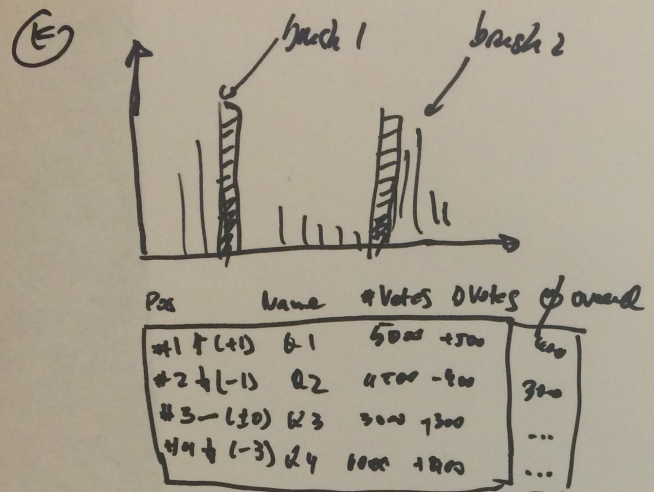 E
brush 1
brush 2
Pos Name #Votes ΔVotes Ø overall
#1 ↑ (+1) Q1 5000 +500
#2 ↓ (-1) Q2 4500 -400 300
#3 — (±0) Q3 3000 +300 ...
#4 ↓ (-3) Q4 ...